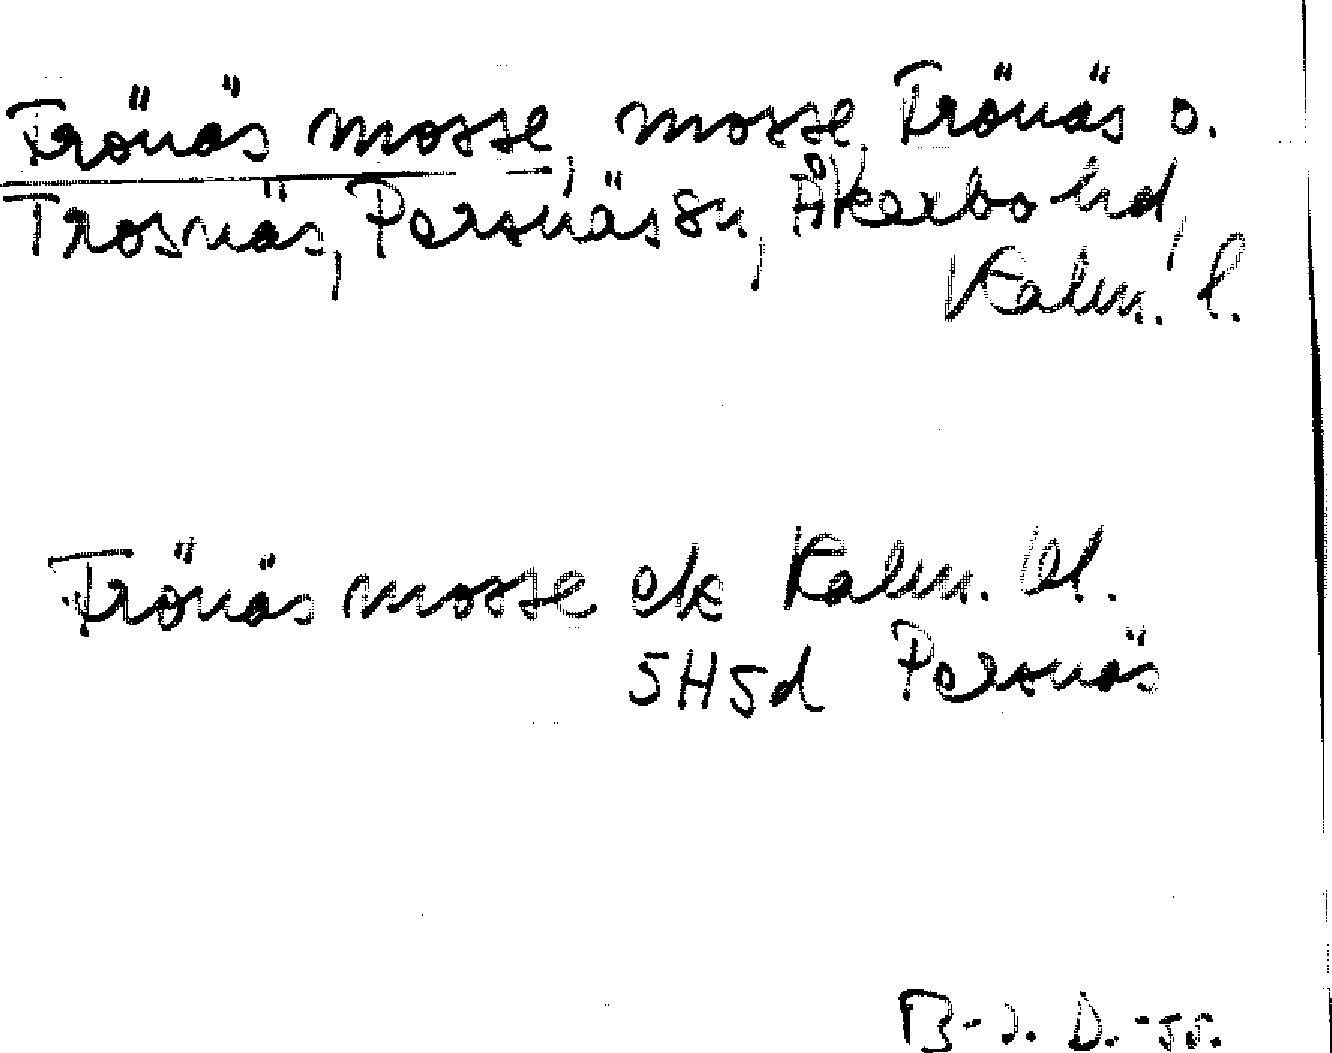 Trönäs mosse, mosse, Trönäs o.
Trosnäs, Persnäs sn, Åkerbo hd,
Kalm. l.
Trönäs mosse ek Kalm. l.
5H5d Persnäs
B-J. D. -55.